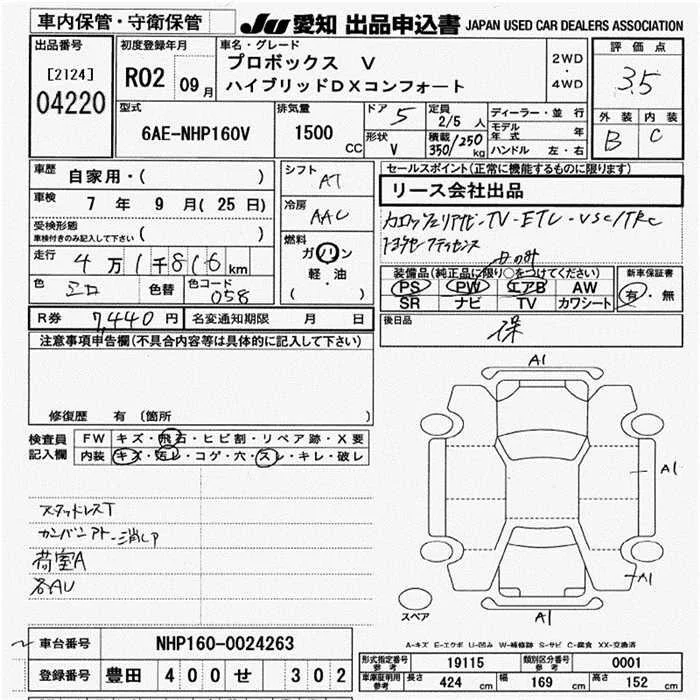 車内保管・守衛保管
JU 愛知 出品申込書 JAPAN USED CAR DEALERS ASSOCIATION
出品番号
[2124]
04220
初度登録年月
R02 09月
車名・グレード
プロボックス V
ハイブリッドDXコンフォート
2WD
・
4WD
評価点
3.5
外装 内装
B C
型式
6AE-NHP160V
排気量
1500 CC
ドア 5
形状 V
定員 2/5 人
積載 350/250 kg
ディーラー・並行
モデル年式 年
ハンドル 左・右
車歴 自家用・( )
車検 7 年 9 月( 25 日)
受検形態
車検付きのみ記入して下さい ( )
走行 4万1千816km
色 シロ 色替 色コード 058
シフト AT
冷房 AAC
燃料
ガソリン
軽・油
( )
セールスポイント(正常に機能するものに限ります)
リース会社出品
TV-ETC-VSC/TRC
装備品(純正品に限り○をつけてください)
PS PW エアB AW
SR ナビ TV カワシート
新車保証書
有・無
R券 7,440円 名変通知期限 月 日
後日品
保
注意事項申告欄(不具合内容等は具体的に記入して下さい)
修復歴 有 (箇所 )
検査員記入欄
FW キズ・飛石・ヒビ割・リペア跡・X要
内装 キズ・汚レ・コゲ・穴・スレ・キレ・破レ
スタッドレスT
カンバンアト-消しP
荷室A
各AU
A1
A1
A1
A1
スペア
A-キズ E-エクボ U-凹み W-補修跡 S-サビ C-腐食 XX-交換済
車台番号 NHP160-0024263
登録番号 豊田 400 せ 302
形式指定番号 参考 19115 類別区分番号 参考 0001
車庫証明用 参考 長さ 424 cm 幅 169 cm 高さ 152 cm